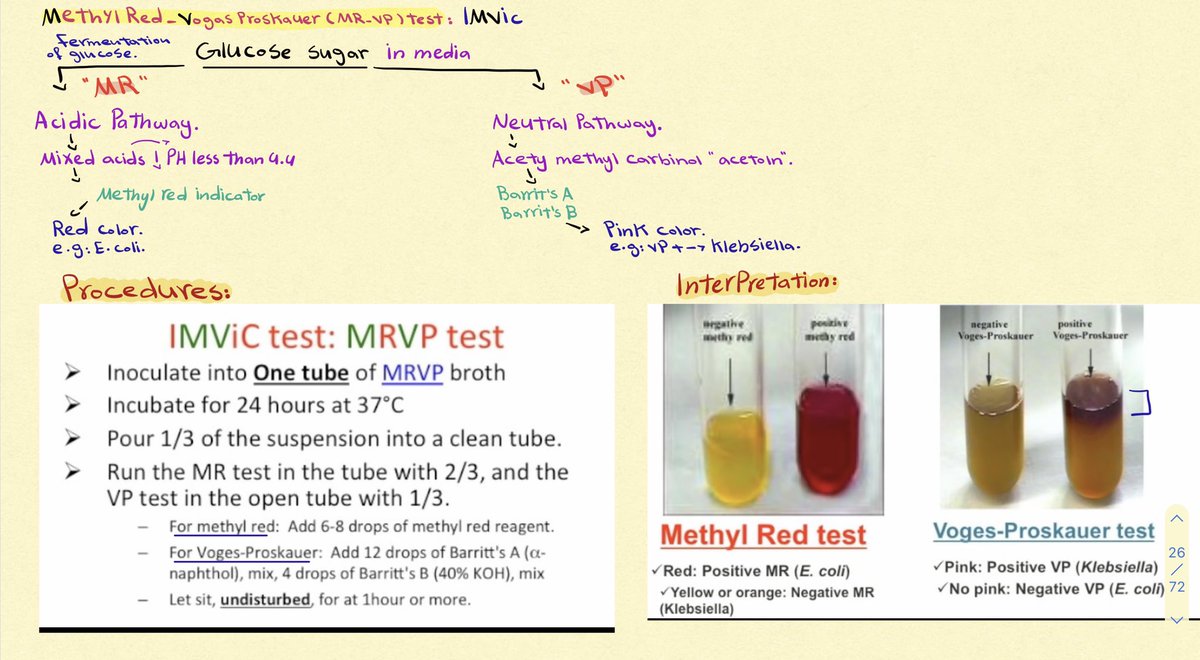 Methyl Red_Vogas Proskauer (MR_VP) test: IMVic
fermentation
of glucose.
Glucose sugar in media
"MR"
Acidic Pathway.
Mixed acids ! PH less than 4.4
Methyl red indicator
Red color.
e.g: E. coli.
"VP"
Neutral Pathway.
Acety methyl carbinol "acetoin".
Barrit's A
Barrit's B
Pink color.
e.g: VP + → Klebsiella.
Procedures:
IMViC test: MRVP test
➤ Inoculate into One tube of MRVP broth
➤ Incubate for 24 hours at 37°C
➤ Pour 1/3 of the suspension into a clean tube.
➤ Run the MR test in the tube with 2/3, and the
VP test in the open tube with 1/3.
– For methyl red: Add 6-8 drops of methyl red reagent.
– For Voges-Proskauer: Add 12 drops of Barritt's A (α-
naphthol), mix, 4 drops of Barritt's B (40% KOH), mix
– Let sit, undisturbed, for at 1hour or more.
Interpretation:
negative
methy red
positive
methy red
Methyl Red test
✓Red: Positive MR (E. coli)
✓Yellow or orange: Negative MR
(Klebsiella)
negative
Voges-Proskauer
positive
Voges-Proskauer
Voges-Proskauer test
✓Pink: Positive VP (Klebsiella)
✓No pink: Negative VP (E. coli)
26
/
72